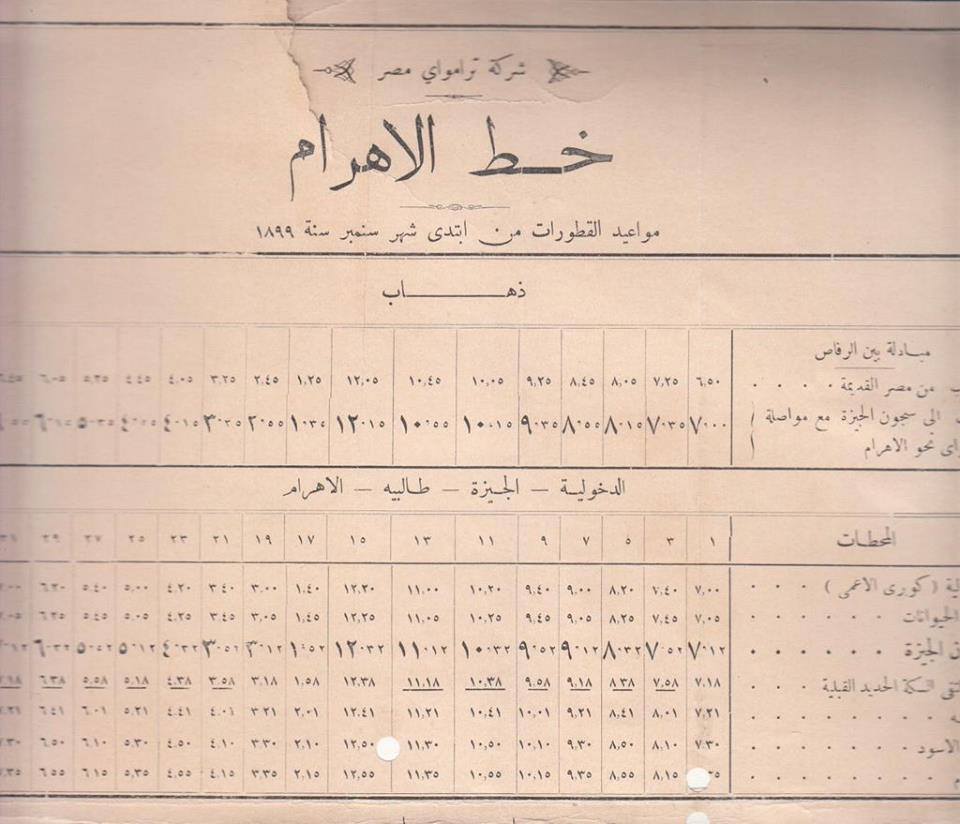 شركة ترامواي مصر
خط الاهرام
مواعيد القطورات من ابتدى شهر سنمبر سنة ١٨٩٩
ذهاب
مبادلة بين الرفاص
من مصر القديمة . . . . ٦,٥٠ ٧,٢٥ ٨,٠٥ ٨,٤٥ ٩,٢٥ ١٠,٠٥ ١٠,٤٥ ١٢,٠٥ ١,٢٥ ٢,٤٥ ٣,٢٥ ٤,٠٥ ٤,٤٥ ٥,٢٥ ٦,٠٥
الى سجون الجيزة مع مواصلة ٧·٠٠ ٧·٣٥ ٨·١٥ ٨·٥٥ ٩·٣٥ ١٠·١٥ ١٠·٥٥ ١٢·١٥ ١·٣٥ ٢·٥٥ ٣·٣٥ ٤·١٥ ٥·٣٥ ٦·١٥
نحو الاهرام
الدخولية – الجيزة – طالبيه – الاهرام
المحطات ١ ٣ ٥ ٧ ٩ ١١ ١٣ ١٥ ١٧ ١٩ ٢١ ٢٣ ٢٥ ٢٧ ٢٩ ٣١
(كوبرى الاعمى) . . ٧,٠٠ ٧,٤٠ ٨,٢٠ ٩,٠٠ ٩,٤٠ ١٠,٢٠ ١١,٠٠ ١٢,٢٠ ١,٤٠ ٣,٠٠ ٣,٤٠ ٤,٢٠ ٥,٠٠ ٥,٤٠ ٦,٢٠
الحيوانات . . . . . . ٧,٠٥ ٧,٤٥ ٨,٢٥ ٩,٠٥ ٩,٤٥ ١٠,٢٥ ١١,٠٥ ١٢,٢٥ ١,٤٥ ٣,٠٥ ٣,٤٥ ٤,٢٥ ٥,٠٥ ٥,٤٥ ٦,٢٥
الجيزة . . . . . . ٧·١٢ ٧·٥٢ ٨·٣٢ ٩·١٢ ٩·٥٢ ١٠·٣٢ ١١·١٢ ١٢·٣٢ ١·٥٢ ٣·١٢ ٣·٥٢ ٤·٣٢ ٥·١٢ ٥·٥٢ ٦·٣٢
السكة الحديد القبلية ٧,١٨ ٧,٥٨ ٨,٣٨ ٩,١٨ ٩,٥٨ ١٠,٣٨ ١١,١٨ ١٢,٣٨ ١,٥٨ ٣,١٨ ٣,٥٨ ٤,٣٨ ٥,١٨ ٥,٥٨ ٦,٣٨
. . . . . . . . ٧,٢١ ٨,٠١ ٨,٤١ ٩,٢١ ١٠,٠١ ١٠,٤١ ١١,٢١ ١٢,٤١ ٢,٠١ ٣,٢١ ٤,٠١ ٤,٤١ ٥,٢١ ٦,٠١ ٦,٤١
الاسود . . . . . . . ٧,٣٠ ٨,١٠ ٨,٥٠ ٩,٣٠ ١٠,١٠ ١٠,٥٠ ١١,٣٠ ١٢,٥٠ ٢,١٠ ٣,٣٠ ٤,١٠ ٤,٥٠ ٥,٣٠ ٦,١٠ ٦,٥٠
. . . . . . . . ٨,١٥ ٨,٥٥ ٩,٣٥ ١٠,١٥ ١٠,٥٥ ١١,٣٥ ١٢,٥٥ ٢,١٥ ٣,٣٥ ٤,١٥ ٤,٥٥ ٥,٣٥ ٦,١٥ ٦,٥٥